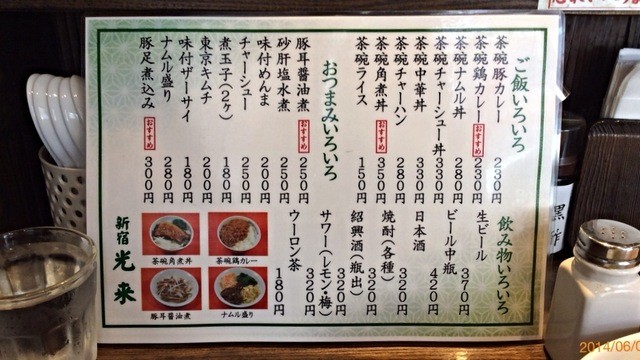 ご飯いろいろ
茶碗豚カレー 230円
茶碗鶏カレー おすすめ 230円
茶碗ナムル丼 280円
茶碗チャーシュー丼 330円
茶碗中華丼 330円
茶碗チャーハン 280円
茶碗角煮丼 おすすめ 350円
茶碗ライス 150円
おつまみいろいろ
豚耳醤油煮 おすすめ 250円
砂肝塩水煮 250円
味付めんま 200円
チャーシュー 250円
煮玉子(2ヶ) 180円
東京キムチ 200円
味付ザーサイ 180円
ナムル盛り 280円
豚足煮込み おすすめ 300円
飲み物いろいろ
生ビール 370円
ビール中瓶 420円
日本酒 320円
焼酎(各種) 320円
紹興酒(瓶出) 320円
サワー(レモン・梅) 320円
ウーロン茶 180円
茶碗角煮丼
茶碗鶏カレー
豚耳醤油煮
ナムル盛り
新宿 光来
黒酢
2014/06/0